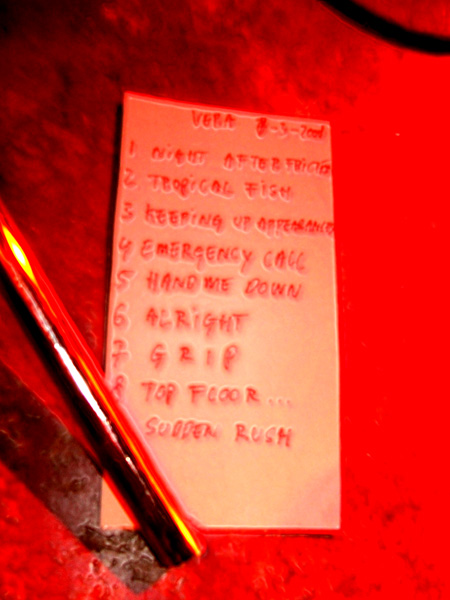 VERA 8-5-2001
1 NIGHT AFTER
2 TROPICAL FISH
3 KEEPING UP APPEARANCES
4 EMERGENCY CALL
5 HAND ME DOWN
6 ALRIGHT
7 GRIP
8 TOP FLOOR...
SUDDEN RUSH